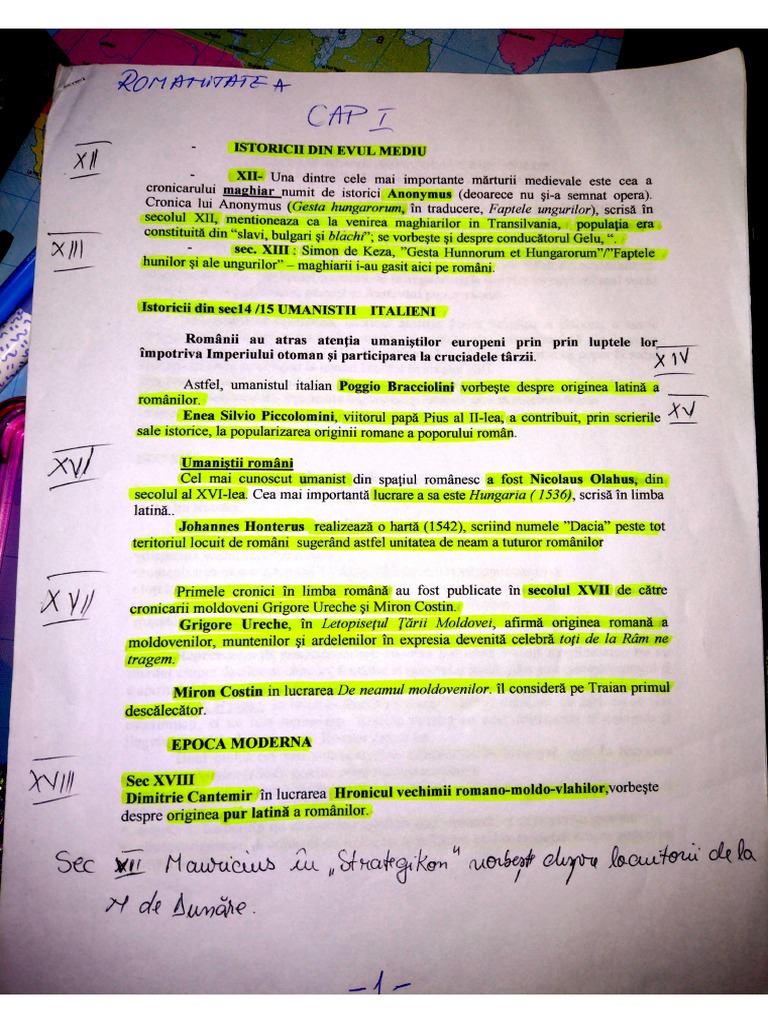 ROMANITATEA
CAP I
- ISTORICII DIN EVUL MEDIU
XII
- XII- Una dintre cele mai importante mărturii medievale este cea a
cronicarului maghiar numit de istorici Anonymus (deoarece nu şi-a semnat opera).
Cronica lui Anonymus (Gesta hungarorum, în traducere, Faptele ungurilor), scrisă în
secolul XII, mentioneaza ca la venirea maghiarilor in Transilvania, populaţia era
constituită din "slavi, bulgari şi blachi"; se vorbeşte şi despre conducătorul Gelu, ".
XIII
- sec. XIII : Simon de Keza, "Gesta Hunnorum et Hungarorum"/"Faptele
hunilor şi ale ungurilor" – maghiarii i-au gasit aici pe români.
Istoricii din sec14 /15 UMANISTII ITALIENI
Românii au atras atenţia umaniştilor europeni prin prin luptele lor
împotriva Imperiului otoman şi participarea la cruciadele târzii.
XIV
Astfel, umanistul italian Poggio Bracciolini vorbeşte despre originea latină a
românilor.
XV
Enea Silvio Piccolomini, viitorul papă Pius al II-lea, a contribuit, prin scrierile
sale istorice, la popularizarea originii romane a poporului român.
XVI
Umaniştii români
Cel mai cunoscut umanist din spaţiul românesc a fost Nicolaus Olahus, din
secolul al XVI-lea. Cea mai importantă lucrare a sa este Hungaria ( 1536), scrisă în limba
latină..
Johannes Honterus realizează o hartă (1542), scriind numele "Dacia" peste tot
teritoriul locuit de români sugerând astfel unitatea de neam a tuturor românilor
XVII
Primele cronici în limba română au fost publicate în secolul XVII de către
cronicarii moldoveni Grigore Ureche şi Miron Costin.
Grigore Ureche, în Letopiseţul Ţării Moldovei, afirmă originea romană a
moldovenilor, muntenilor şi ardelenilor în expresia devenită celebră toţi de la Râm ne
tragem.
Miron Costin in lucrarea De neamul moldovenilor. îl consideră pe Traian primul
descălecător.
EPOCA MODERNA
XVIII
Sec XVIII
Dimitrie Cantemir în lucrarea Hronicul vechimii romano-moldo-vlahilor,vorbeşte
despre originea pur latină a românilor.
Sec Mauricius în „Strategikon" vorbește despre locuitorii de la
N de Dunăre.
-1-